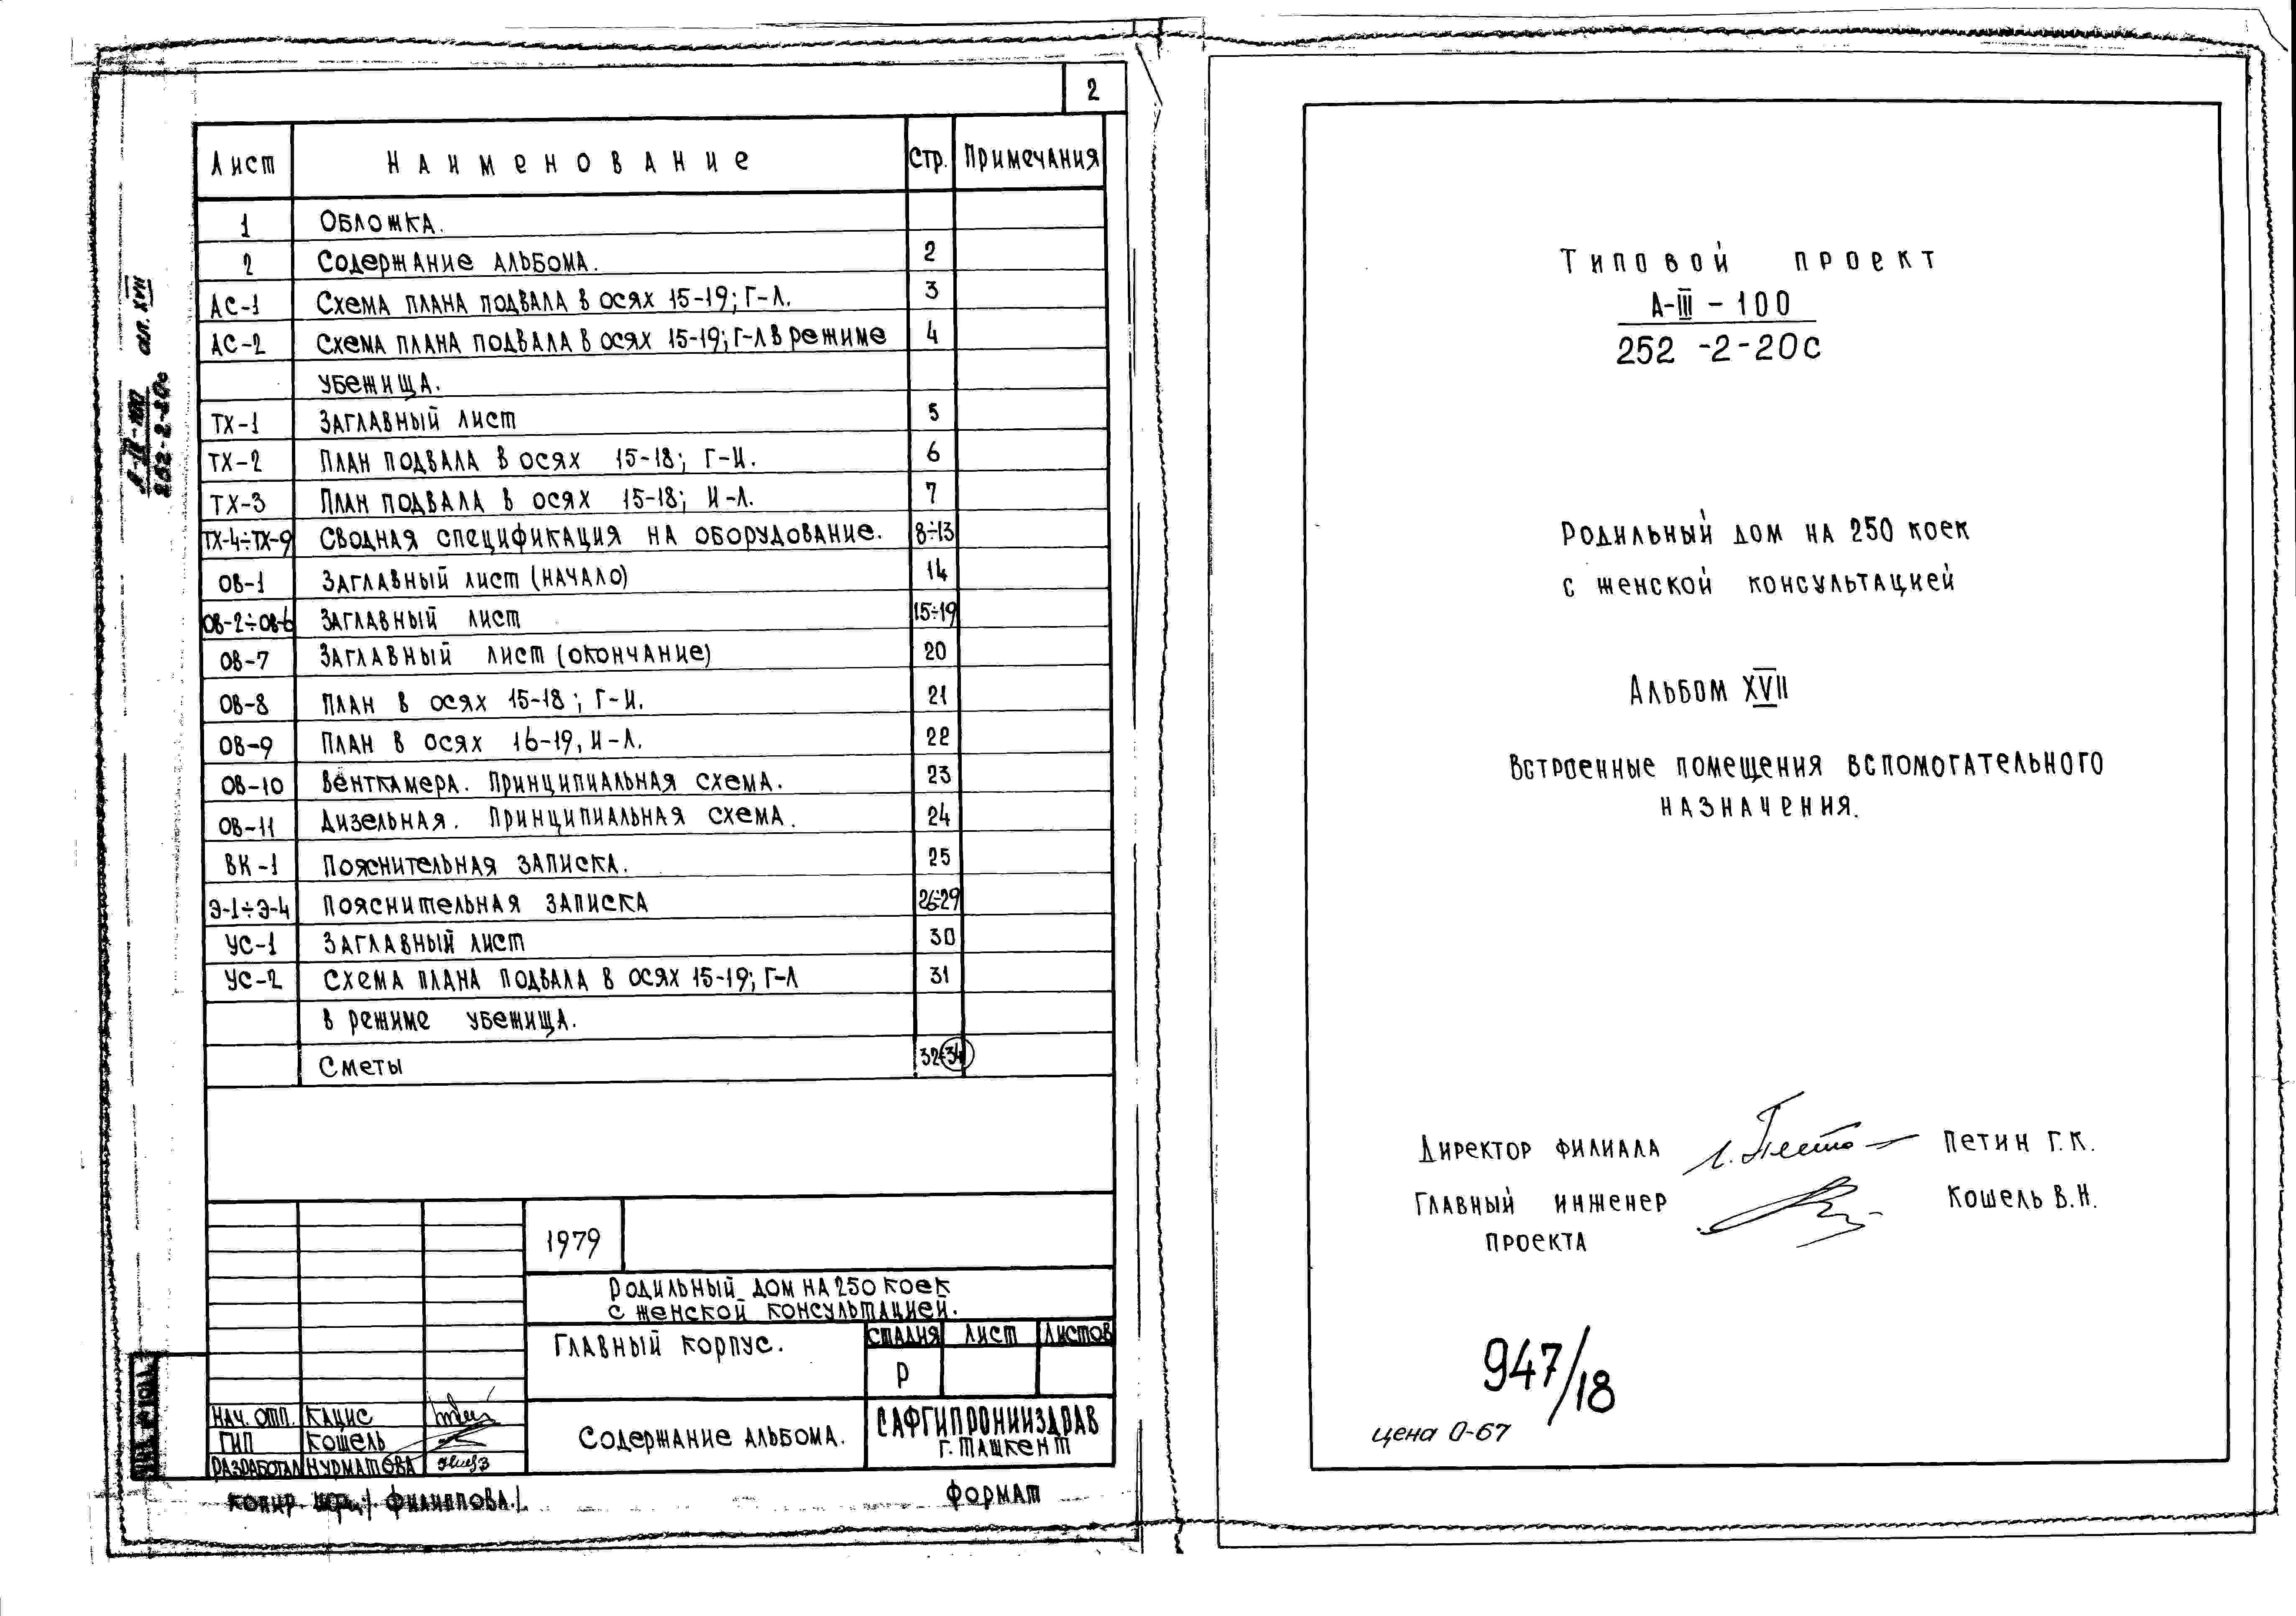 2
Лист Наименование Стр. Примечания
1 Обложка.
2 Содержание альбома. 2
АС-1 Схема плана подвала в осях 15-19; Г-Л. 3
АС-2 Схема плана подвала в осях 15-19; Г-Л в режиме 4
убежища.
ТХ-1 Заглавный лист 5
ТХ-2 План подвала в осях 15-18; Г-И. 6
ТХ-3 План подвала в осях 15-18; И-Л. 7
ТХ-4÷ТХ-9 Сводная спецификация на оборудование. 8÷13
ОВ-1 Заглавный лист (начало) 14
ОВ-2÷ОВ-6 Заглавный лист 15÷19
ОВ-7 Заглавный лист (окончание) 20
ОВ-8 План в осях 15-18; Г-И. 21
ОВ-9 План в осях 16-19, И-Л. 22
ОВ-10 Венткамера. Принципиальная схема. 23
ОВ-11 Дизельная. Принципиальная схема. 24
ВК-1 Пояснительная записка. 25
Э-1÷Э-4 Пояснительная записка 26÷29
УС-1 Заглавный лист 30
УС-2 Схема плана подвала в осях 15-19; Г-Л 31
в режиме убежища.
Сметы 32÷34
А-III-100
252-2-20с
ал. XVII
1979
Родильный дом на 250 коек
с женской консультацией.
Главный корпус.
Стадия Лист Листов
Р
Содержание альбома.
САФГИПРОНИИЗДРАВ
г. Ташкент
Нач. отп. Кацис
ГИП Кошель
Разработал Нурматова
Копир. Филиппова.
Формат
Типовой проект
А-III-100
252-2-20с
Родильный дом на 250 коек
с женской консультацией
Альбом XVII
Встроенные помещения вспомогательного
назначения.
Директор филиала Петин Г.К.
Главный инженер Кошель В.Н.
проекта
947/18
цена 0-67